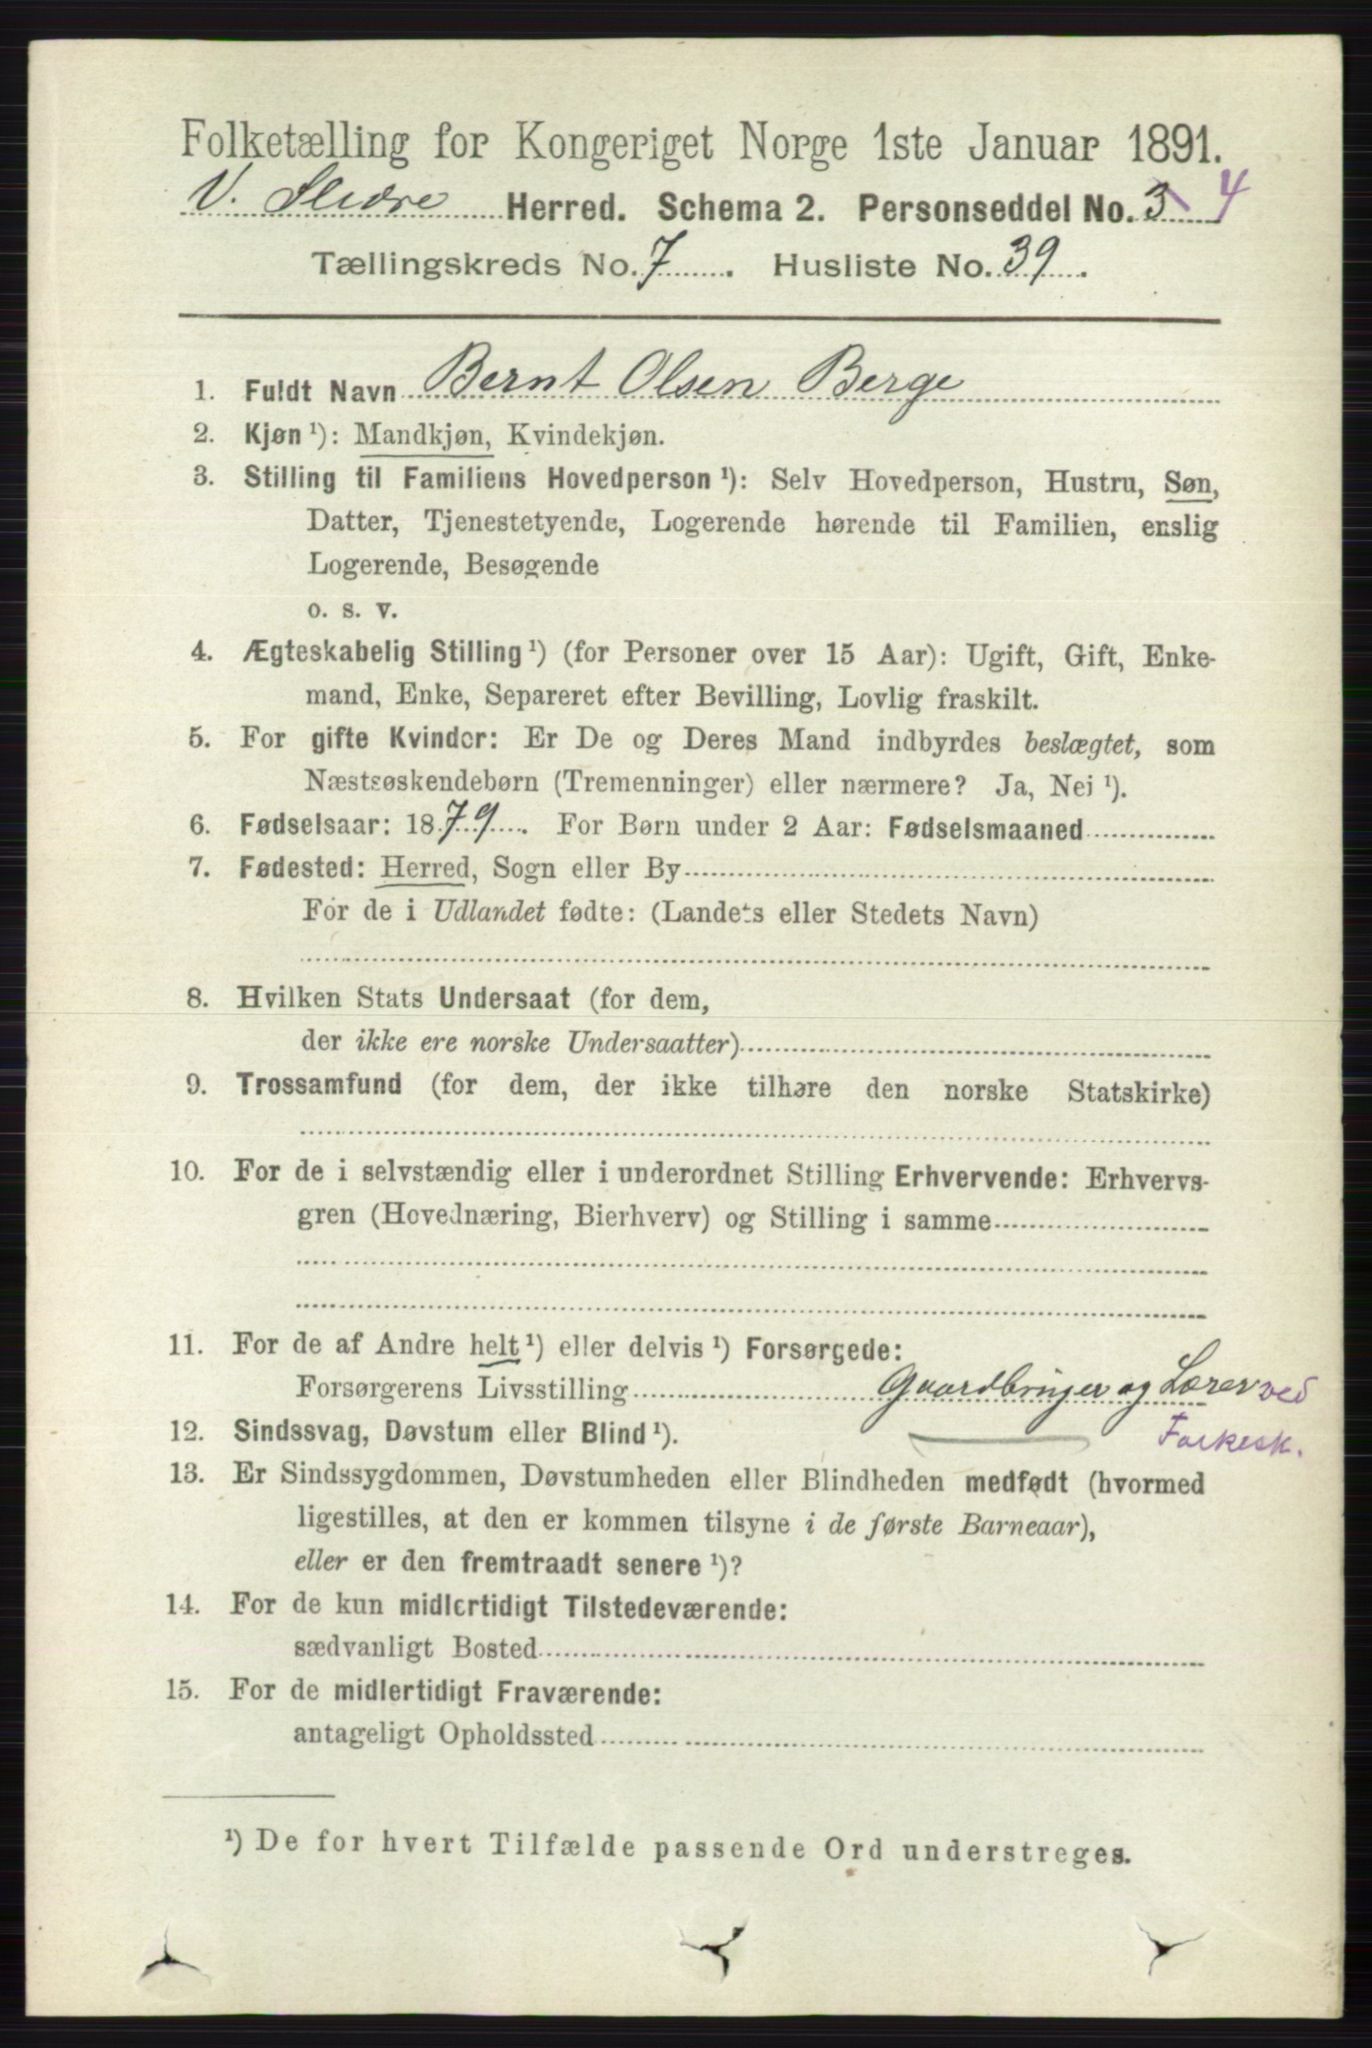 Folketælling for Kongeriget Norge 1ste Januar 1891.
V. Slidre Herred. Schema 2. Personseddel No. 3 4
Tællingskreds No. 7. Husliste No. 39.
1. Fuldt Navn Bernt Olsen Berge
2. Kjøn ¹): Mandkjøn, Kvindekjøn.
3. Stilling til Familiens Hovedperson ¹): Selv Hovedperson, Hustru, Søn,
Datter, Tjenestetyende, Logerende hørende til Familien, enslig
Logerende, Besøgende
o. s. v.
4. Ægteskabelig Stilling ¹) (for Personer over 15 Aar): Ugift, Gift, Enke-
mand, Enke, Separeret efter Bevilling, Lovlig fraskilt.
5. For gifte Kvinder: Er De og Deres Mand indbyrdes beslægtet, som
Næstsøskendebørn (Tremenninger) eller nærmere? Ja, Nei ¹).
6. Fødselsaar: 1879. For Børn under 2 Aar: Fødselsmaaned
7. Fødested: Herred, Sogn eller By
For de i Udlandet fødte: (Landets eller Stedets Navn)
8. Hvilken Stats Undersaat (for dem,
der ikke ere norske Undersaatter)
9. Trossamfund (for dem, der ikke tilhøre den norske Statskirke)
10. For de i selvstændig eller i underordnet Stilling Erhvervende: Erhvervs-
gren (Hovednæring, Bierhverv) og Stilling i samme
11. For de af Andre helt ¹) eller delvis ¹) Forsørgede:
Forsørgerens Livsstilling Gaardbruger og Lærer ved
Folkesk.
12. Sindssvag, Døvstum eller Blind ¹).
13. Er Sindssygdommen, Døvstumheden eller Blindheden medfødt (hvormed
ligestilles, at den er kommen tilsyne i de første Barneaar),
eller er den fremtraadt senere ¹)?
14. For de kun midlertidigt Tilstedeværende:
sædvanligt Bosted
15. For de midlertidigt Fraværende:
antageligt Opholdssted
¹) De for hvert Tilfælde passende Ord understreges.